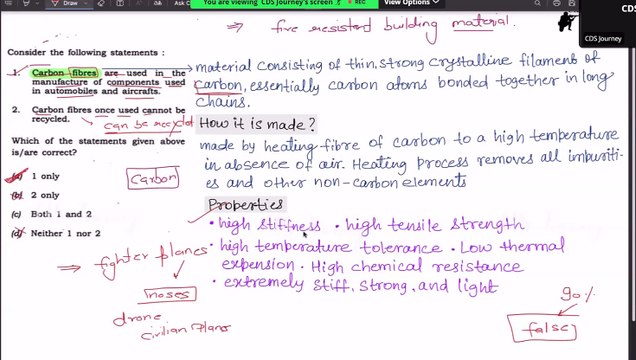 Draw
You are viewing CDS Journey's screen
REC
View Options
CDS Journey
CDS Journey's
⇒ fire resisted building material.
Consider the following statements :
1. Carbon fibres are used in the manufacture of components used in automobiles and aircrafts.
2. Carbon fibres once used cannot be recycled.
can be recycled
Which of the statements given above is/are correct?
(a) 1 only
(b) 2 only
(c) Both 1 and 2
(d) Neither 1 nor 2
Carbon
→ material consisting of thin, strong crystalline filaments of
carbon, essentially carbon atoms bonded together in long
chains.
How it is made?
made by heating fibre of carbon to a high temperature
in absence of air. Heating process removes all impuriti-
es and other non-carbon elements
Properties
• high stiffness • high tensile strength
• high temperature tolerance • Low thermal
expension • High chemical resistance
• extremely stiff, strong, and light
⇒ fighter planes
noses
drone
civilian plane
90%
false